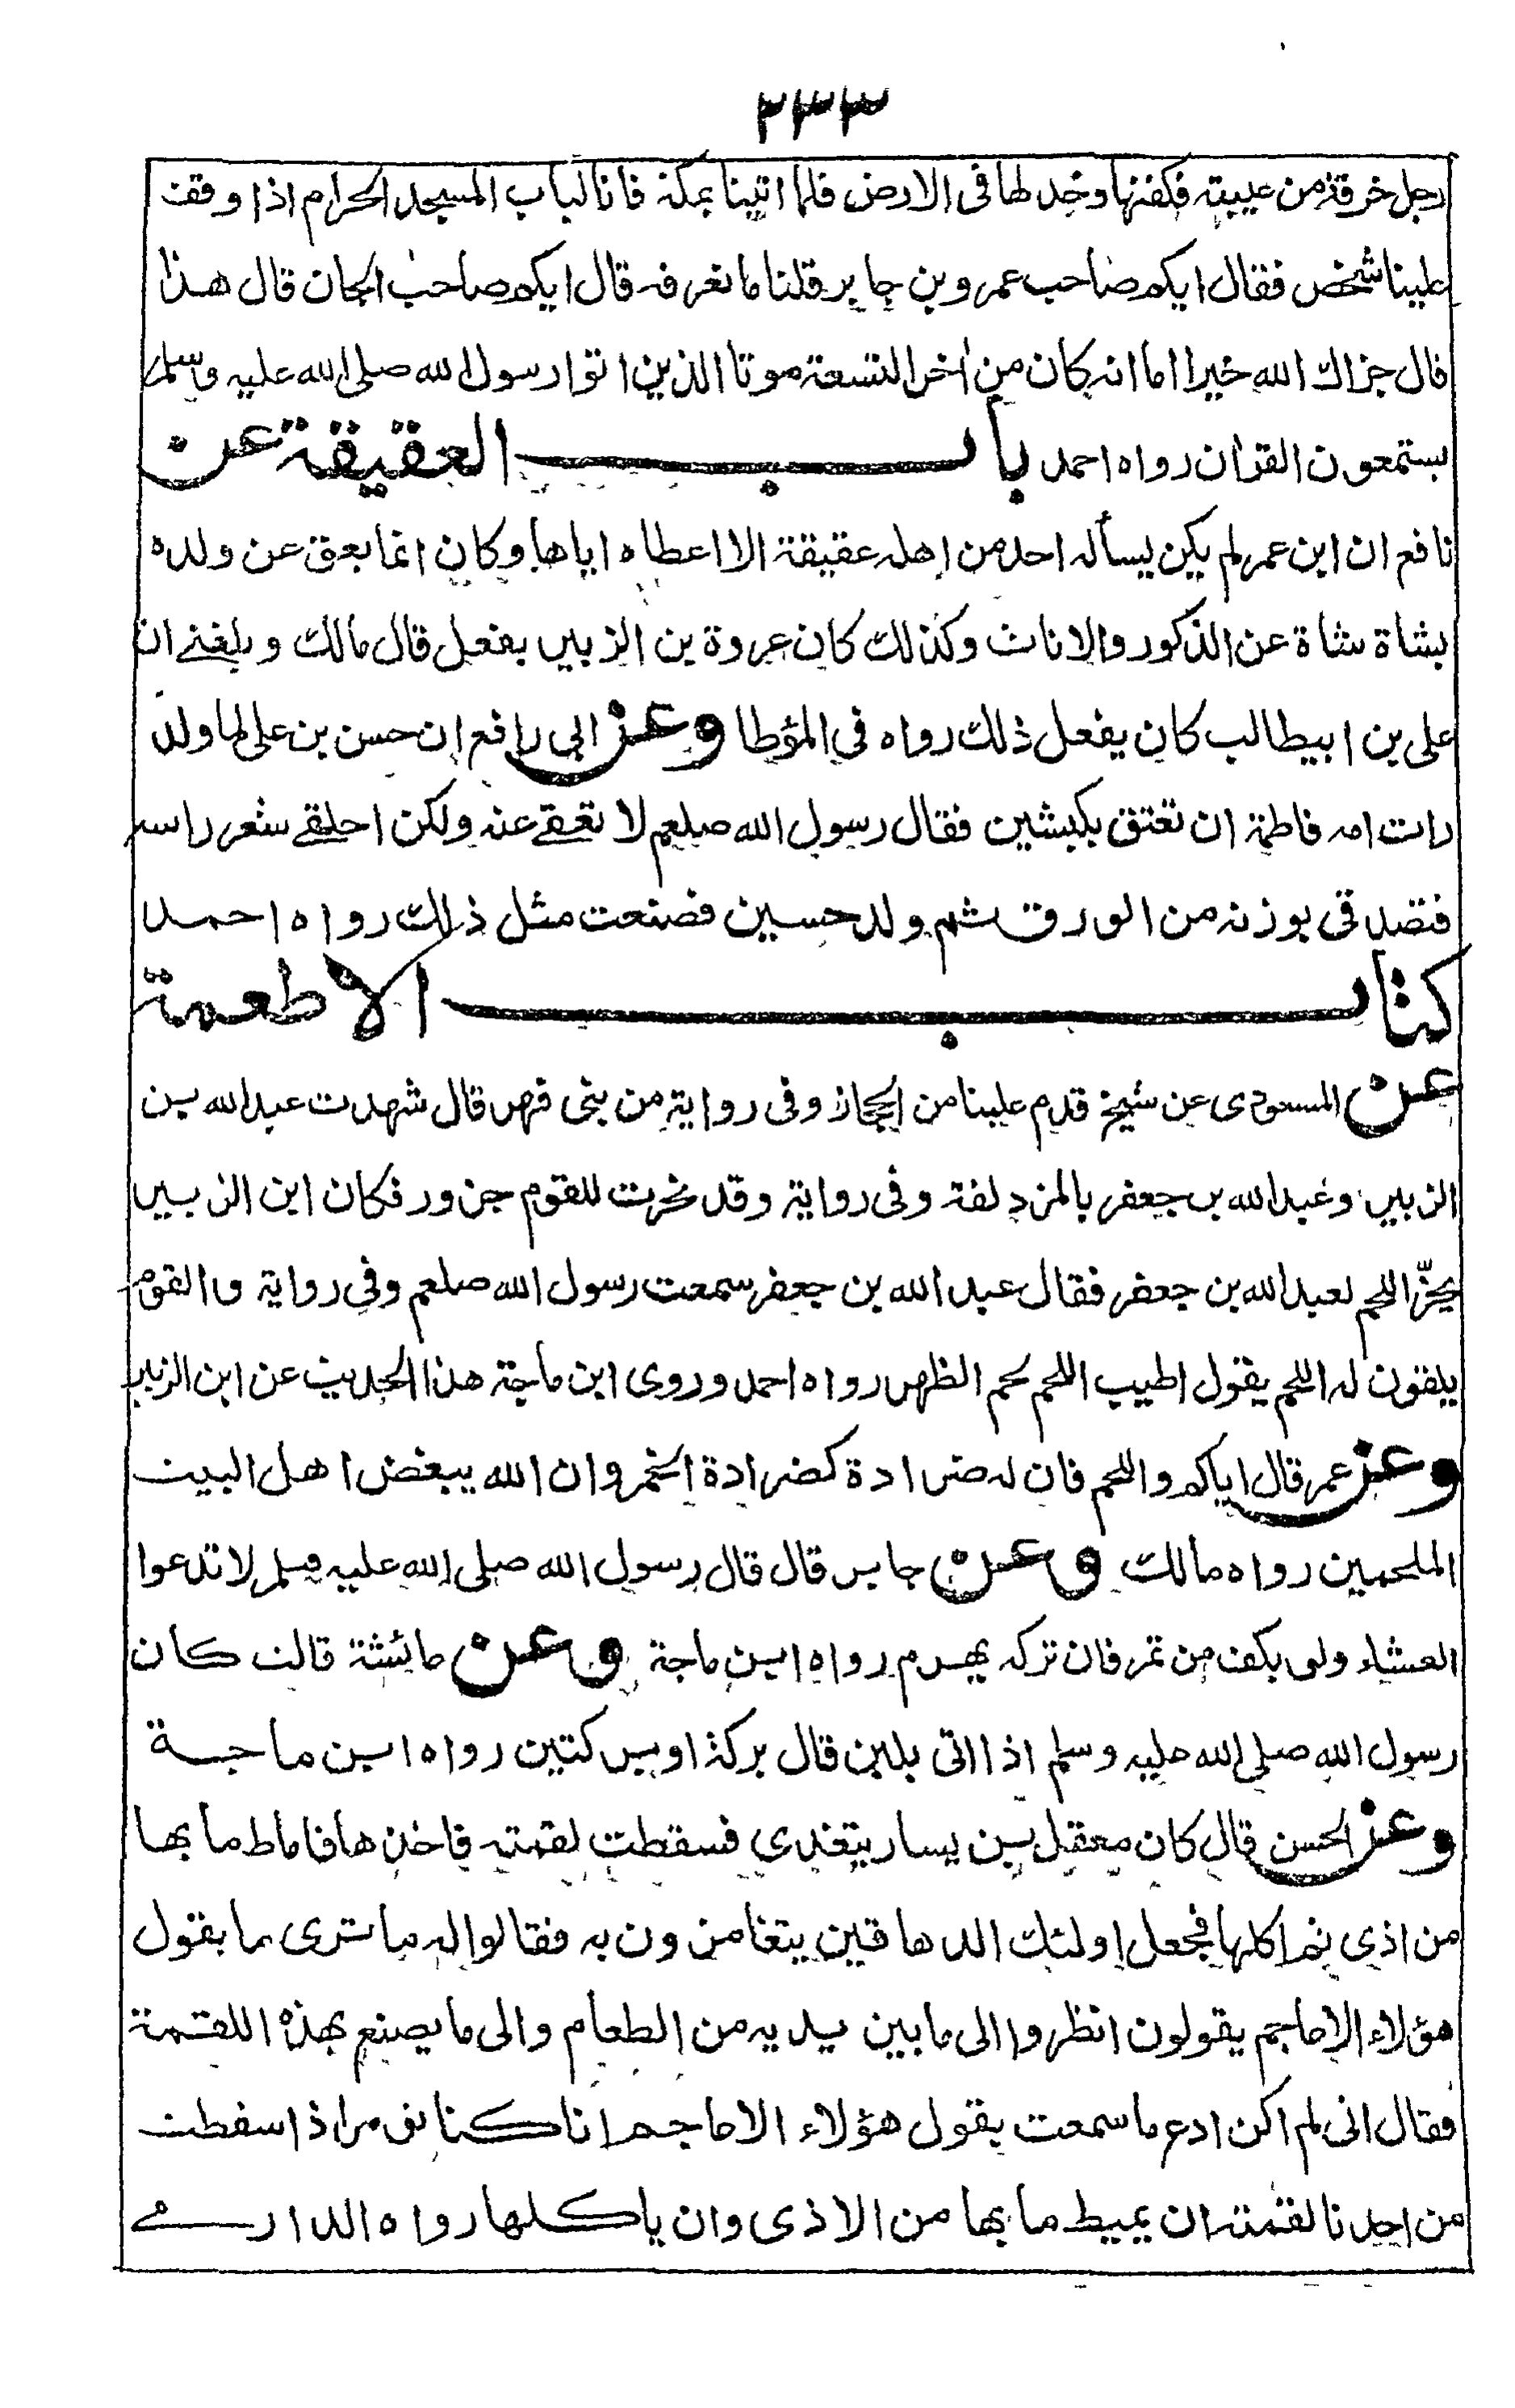 ٢٣٣
رجل خرقة من عيبته فكفنها وخد لها في الارض فلما اتينا بمكة فانا لباب المسجد الحرام اذا وقف
علينا شخص فقال ايكم صاحب عمرو بن جابر قلنا ما نعرفه قال ايكم صاحب الجان قال هذا
قال جزاك الله خيرا اما انه كان من اخر التسعة موتا الذين اتوا رسول الله صلى الله عليه وسلم
يستمعون القران رواه احمد باب العقيقة عن
نافع ان ابن عمر لم يكن يسأله احد من اهله عقيقة الا اعطاه اياها وكان انما يعق عن ولده
بشاة شاة عن الذكور والاناث وكذلك كان عروة بن الزبير يفعل قال مالك وبلغني ان
على بن ابيطالب كان يفعل ذلك رواه في المؤطا وعن ابي رافع ان حسن بن على لما ولد
رات امه فاطمة ان تعتق بكبشين فقال رسول الله صلعم لا تعقي عنه ولكن احلقي شعر راسه
فتصدقى بوزنه من الورق ثم ولد حسين فصنعت مثل ذلك رواه احمد
كتاب الاطعمة
عن المسعودى عن شيخ قدم علينا من الحجاز وفى رواية من بنى فهر قال شهدت عبد الله بن
الزبير وعبد الله بن جعفر بالمزدلفة وفى رواية وقد نحرت للقوم جزور فكان ابن الزبير
يحزّ اللحم لعبد الله بن جعفر فقال عبد الله بن جعفر سمعت رسول الله صلعم وفي رواية والقوم
يلقون له اللحم يقول اطيب اللحم لحم الظهر رواه احمد وروى ابن ماجة هذا الحديث عن ابن الزبير
وعن عمر قال اياكم واللحم فان له ضرادة كضرادة الخمر وان الله يبغض اهل البيت
الملحمين رواه مالك وعن جابر قال قال رسول الله صلى الله عليه وسلم لا تدعوا
العشاء ولى بكف من تمر فان تركه يهرم رواه ابن ماجة وعن عائشة قالت كان
رسول الله صلى الله عليه وسلم اذا اتى بلبن قال بركة او بركتين رواه ابن ماجة
وعن الحسن قال كان معقل بن يسار يتغدى فسقطت لقمته فاخذها فاماط ما بها
من اذى ثم اكلها فجعل اولئك الدهاقين يتغامزون به فقالوا له ما ترى ما يقول
هؤلاء الاعاجم يقولون انظروا الى ما بين يديه من الطعام والى ما يصنع بهذه اللقمة
فقال انى لم اكن ادع ما سمعت بقول هؤلاء الاعاجم انا كنا نؤمر اذا سقطت
من احدنا لقمته ان يميط ما بها من الاذى وان ياكلها رواه الدارمى